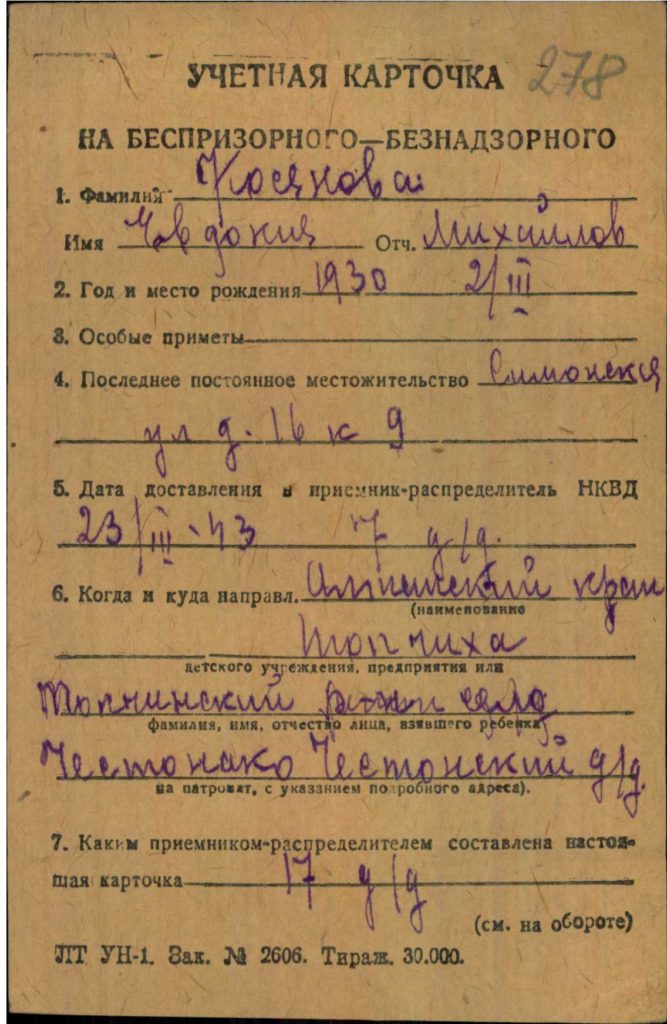 278
УЧЕТНАЯ КАРТОЧКА
НА БЕСПРИЗОРНОГО—БЕЗНАДЗОРНОГО
1. Фамилия Косянова
Имя Евдокия Отч. Михайлов
2. Год и место рождения 1930 2/III
3. Особые приметы
4. Последнее постоянное местожительство Симонская
ул д. 16 к 9
5. Дата доставления в приемник-распределитель НКВД
23/III-43 17 д/д.
6. Когда и куда направл. Алтайский край
(наименование
Топчиха
детского учреждения, предприятия или
Топчинский село
фамилия, имя, отчество лица, взявшего ребенка
Чистонский д/д.
на патронат, с указанием подробного адреса).
7. Каким приемником-распределителем составлена настоя-
щая карточка 17 д/д
(см. на обороте)
ЛТ УН-1. Зак. № 2606. Тираж. 30.000.